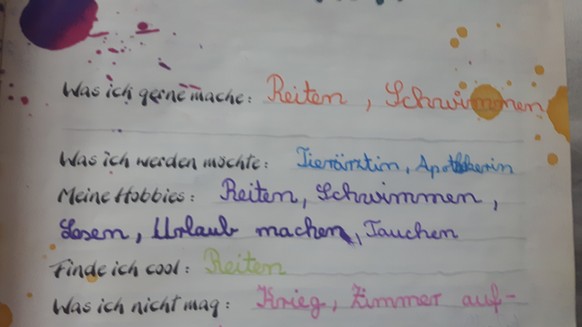 Was ich gerne mache: Reiten, Schwimmen
Was ich werden möchte: Tierärztin, Apothekerin
Meine Hobbies: Reiten, Schwimmen,
Lesen, Urlaub machen, Tauchen
Finde ich cool: Reiten
Was ich nicht mag: Krieg, Zimmer auf-